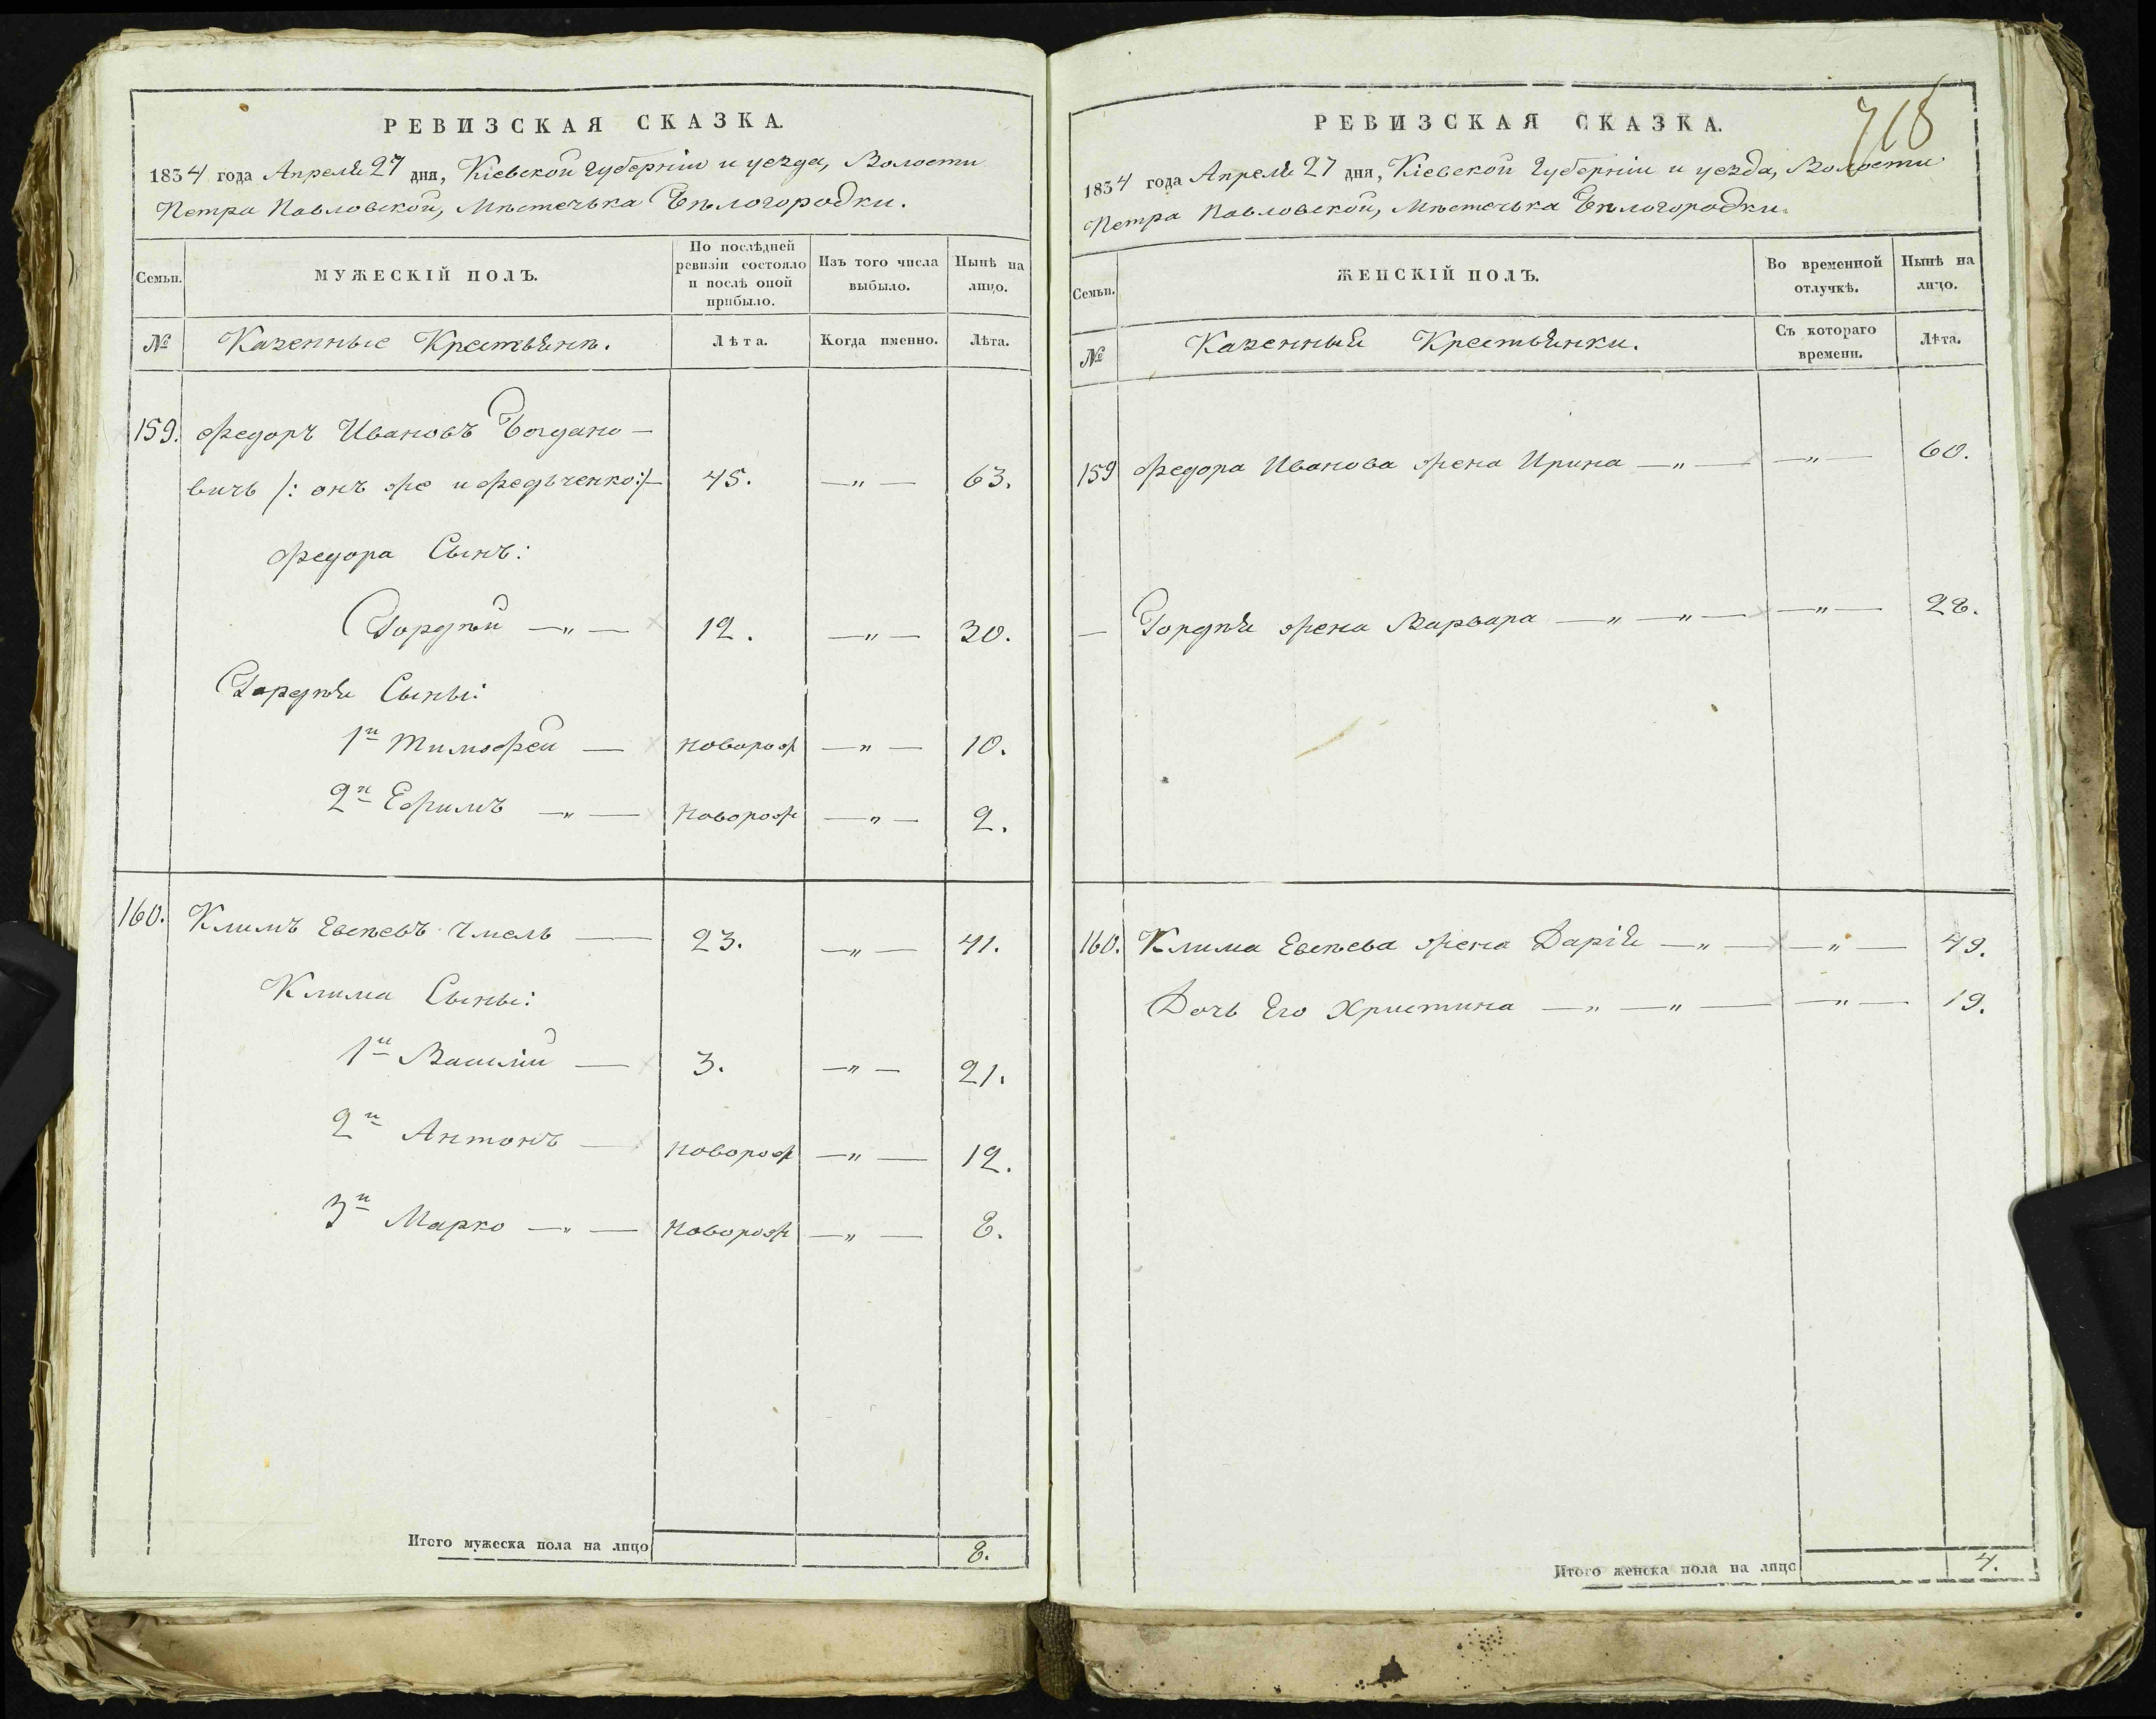 РЕВИЗСКАЯ СКАЗКА.
1834 года Апреля 27 дня, Кіевской Губерніи и уезда, Волости
Петро Павловской, Мѣстечька Бѣлогородки.
Семьи.
МУЖЕСКІЙ ПОЛЪ.
По послѣдней ревизіи состояло и послѣ оной прибыло.
Изъ того числа выбыло.
Нынѣ на лицо.
№
Казенные Крестьянѣ.
Лѣта.
Когда именно.
Лѣта.
159. Федоръ Ивановъ Богдано—
вичь /: онъ же и Федьченко:/— 45. —„— 63.
Федора Сынъ:
Гордѣй —„— 12. —„— 30.
Гордѣя Сыны:
1й Тимофей — новорож —„— 10.
2й Ефимъ —„— новорож —„— 2.
160. Климъ Евсѣевъ Чмель — 23. —„— 41.
Клима Сыны:
1й Василій — 3. —„— 21.
2й Антонъ — новорож —„— 12.
3й Марко —„— новорож —„— 8.
Итого мужеска пола на лицо 8.
718
РЕВИЗСКАЯ СКАЗКА.
1834 года Апреля 27 дня, Кіевской Губерніи и уезда, Волости
Петро Павловской, Мѣстечька Бѣлогородки.
Семьи.
ЖЕНСКІЙ ПОЛЪ.
Во временной отлучкѣ.
Нынѣ на лицо.
№
Казенныя Крестьянки.
Съ котораго времени.
Лѣта.
159 Федора Иванова жена Ирина —„— —„— 60.
— Гордѣя жена Варвара —„—„— —„— 28.
160. Клима Евсѣева жена Дарія —„— —„— 49.
Дочь Его Христина —„—„— —„— 19.
Итого женска пола на лицо 4.